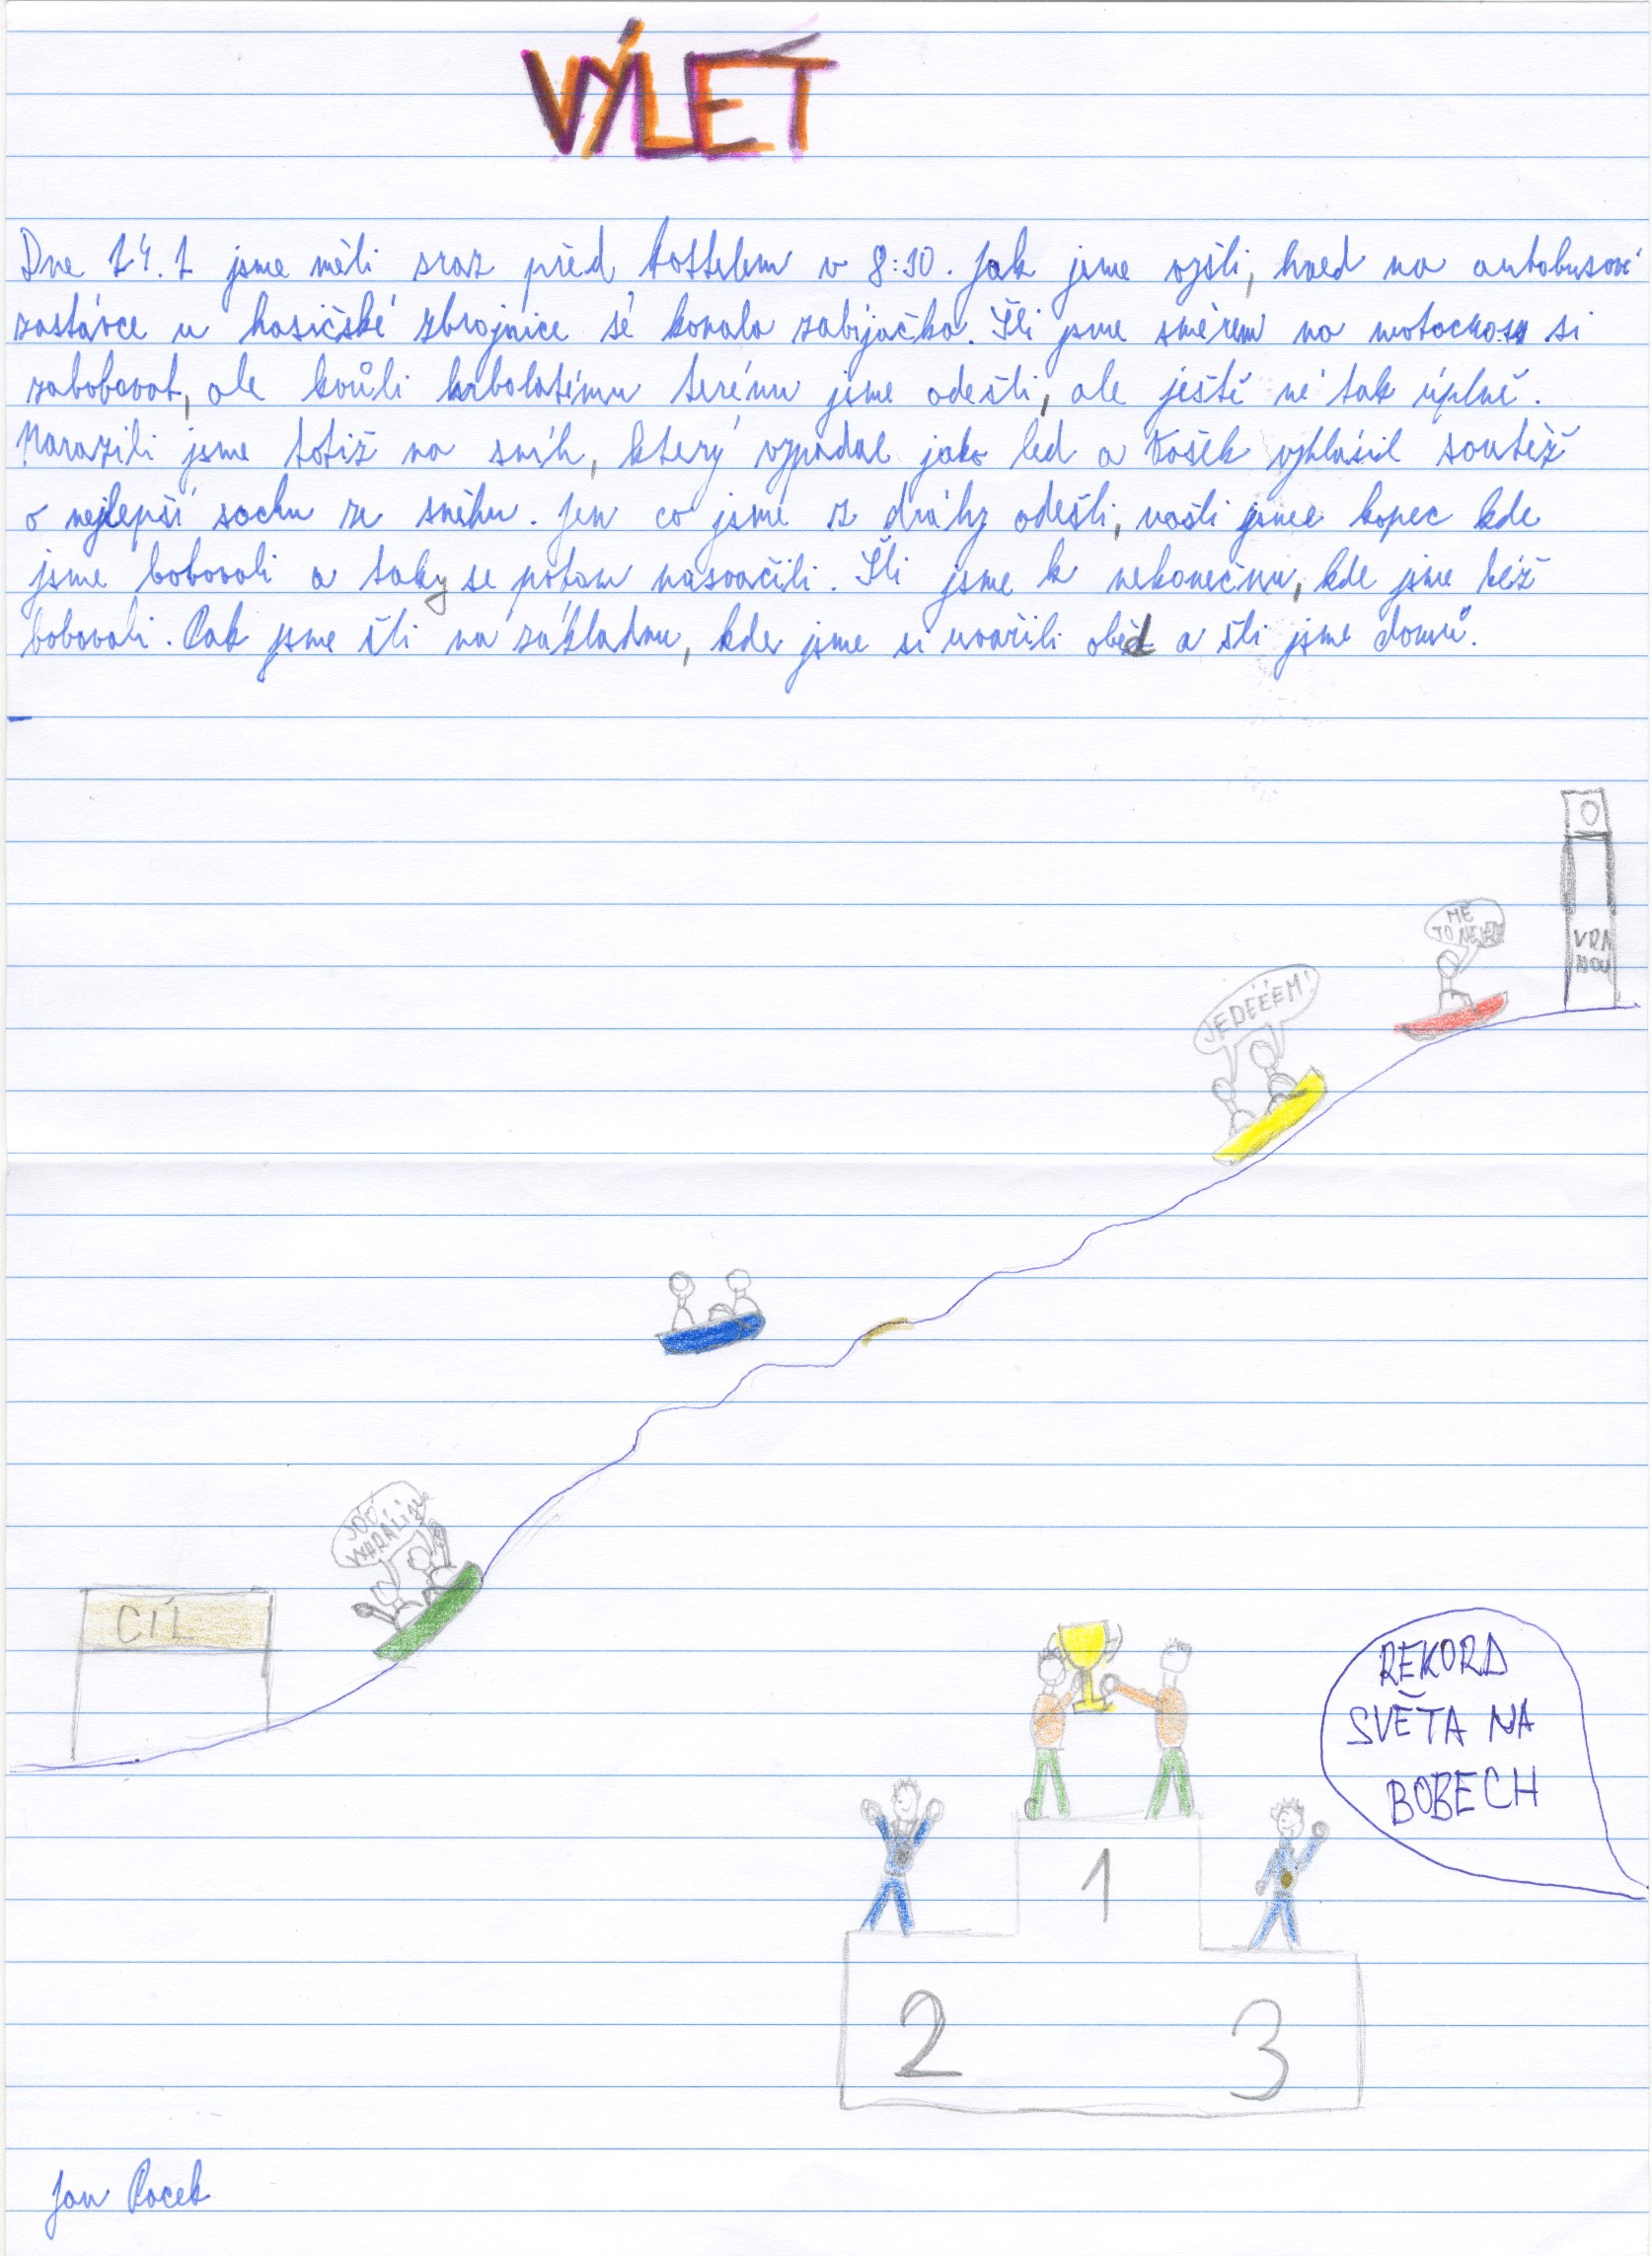 VÝLET
Dne 14.1 jsme měli sraz před kostelem v 8:30. Jak jsme vyšli, hned na autobusové
zastávce u hasičské zbrojnice se konala zabijačka. Šli jsme směrem na motocross si
zabobovat, ale kvůli hrbolatému terénu jsme odešli, ale ještě ne tak úplně.
Narazili jsme totiž na sníh, který vypadal jako led a Vašek vyhlásil soutěž
o nejlepší sochu ze sněhu. Jen co jsme z dráhy odešli, našli jsme kopec kde
jsme bobovali a taky se potom nasvačili. Šli jsme k nekonečnu, kde jsme též
bobovali. Pak jsme šli na základnu, kde jsme si uvařili oběd a šli jsme domů.
MĚ
TO NEJEDE
JEDÉÉÉM!
CÍL
REKORD
SVĚTA NA
BOBECH
1
2
3
Jan Pacek